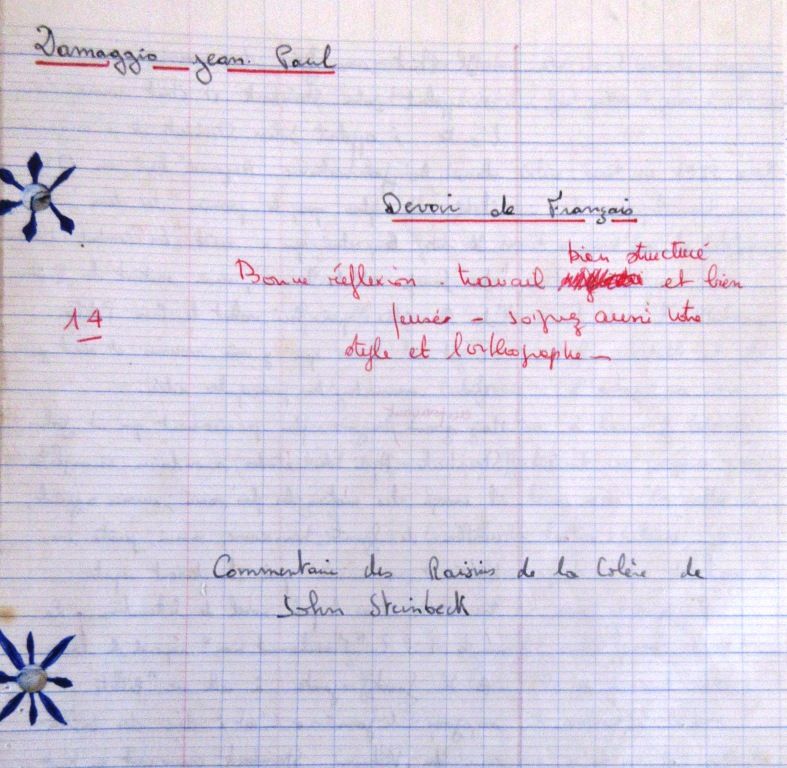 Damaggio jean. Paul
Devoir de Français
bien structuré
Bonne réflexion. travail et bien
14
pensée - soignez aussi votre
style et l'orthographe -
Commentaire des Raisins de la Colère de
John Steinbeck